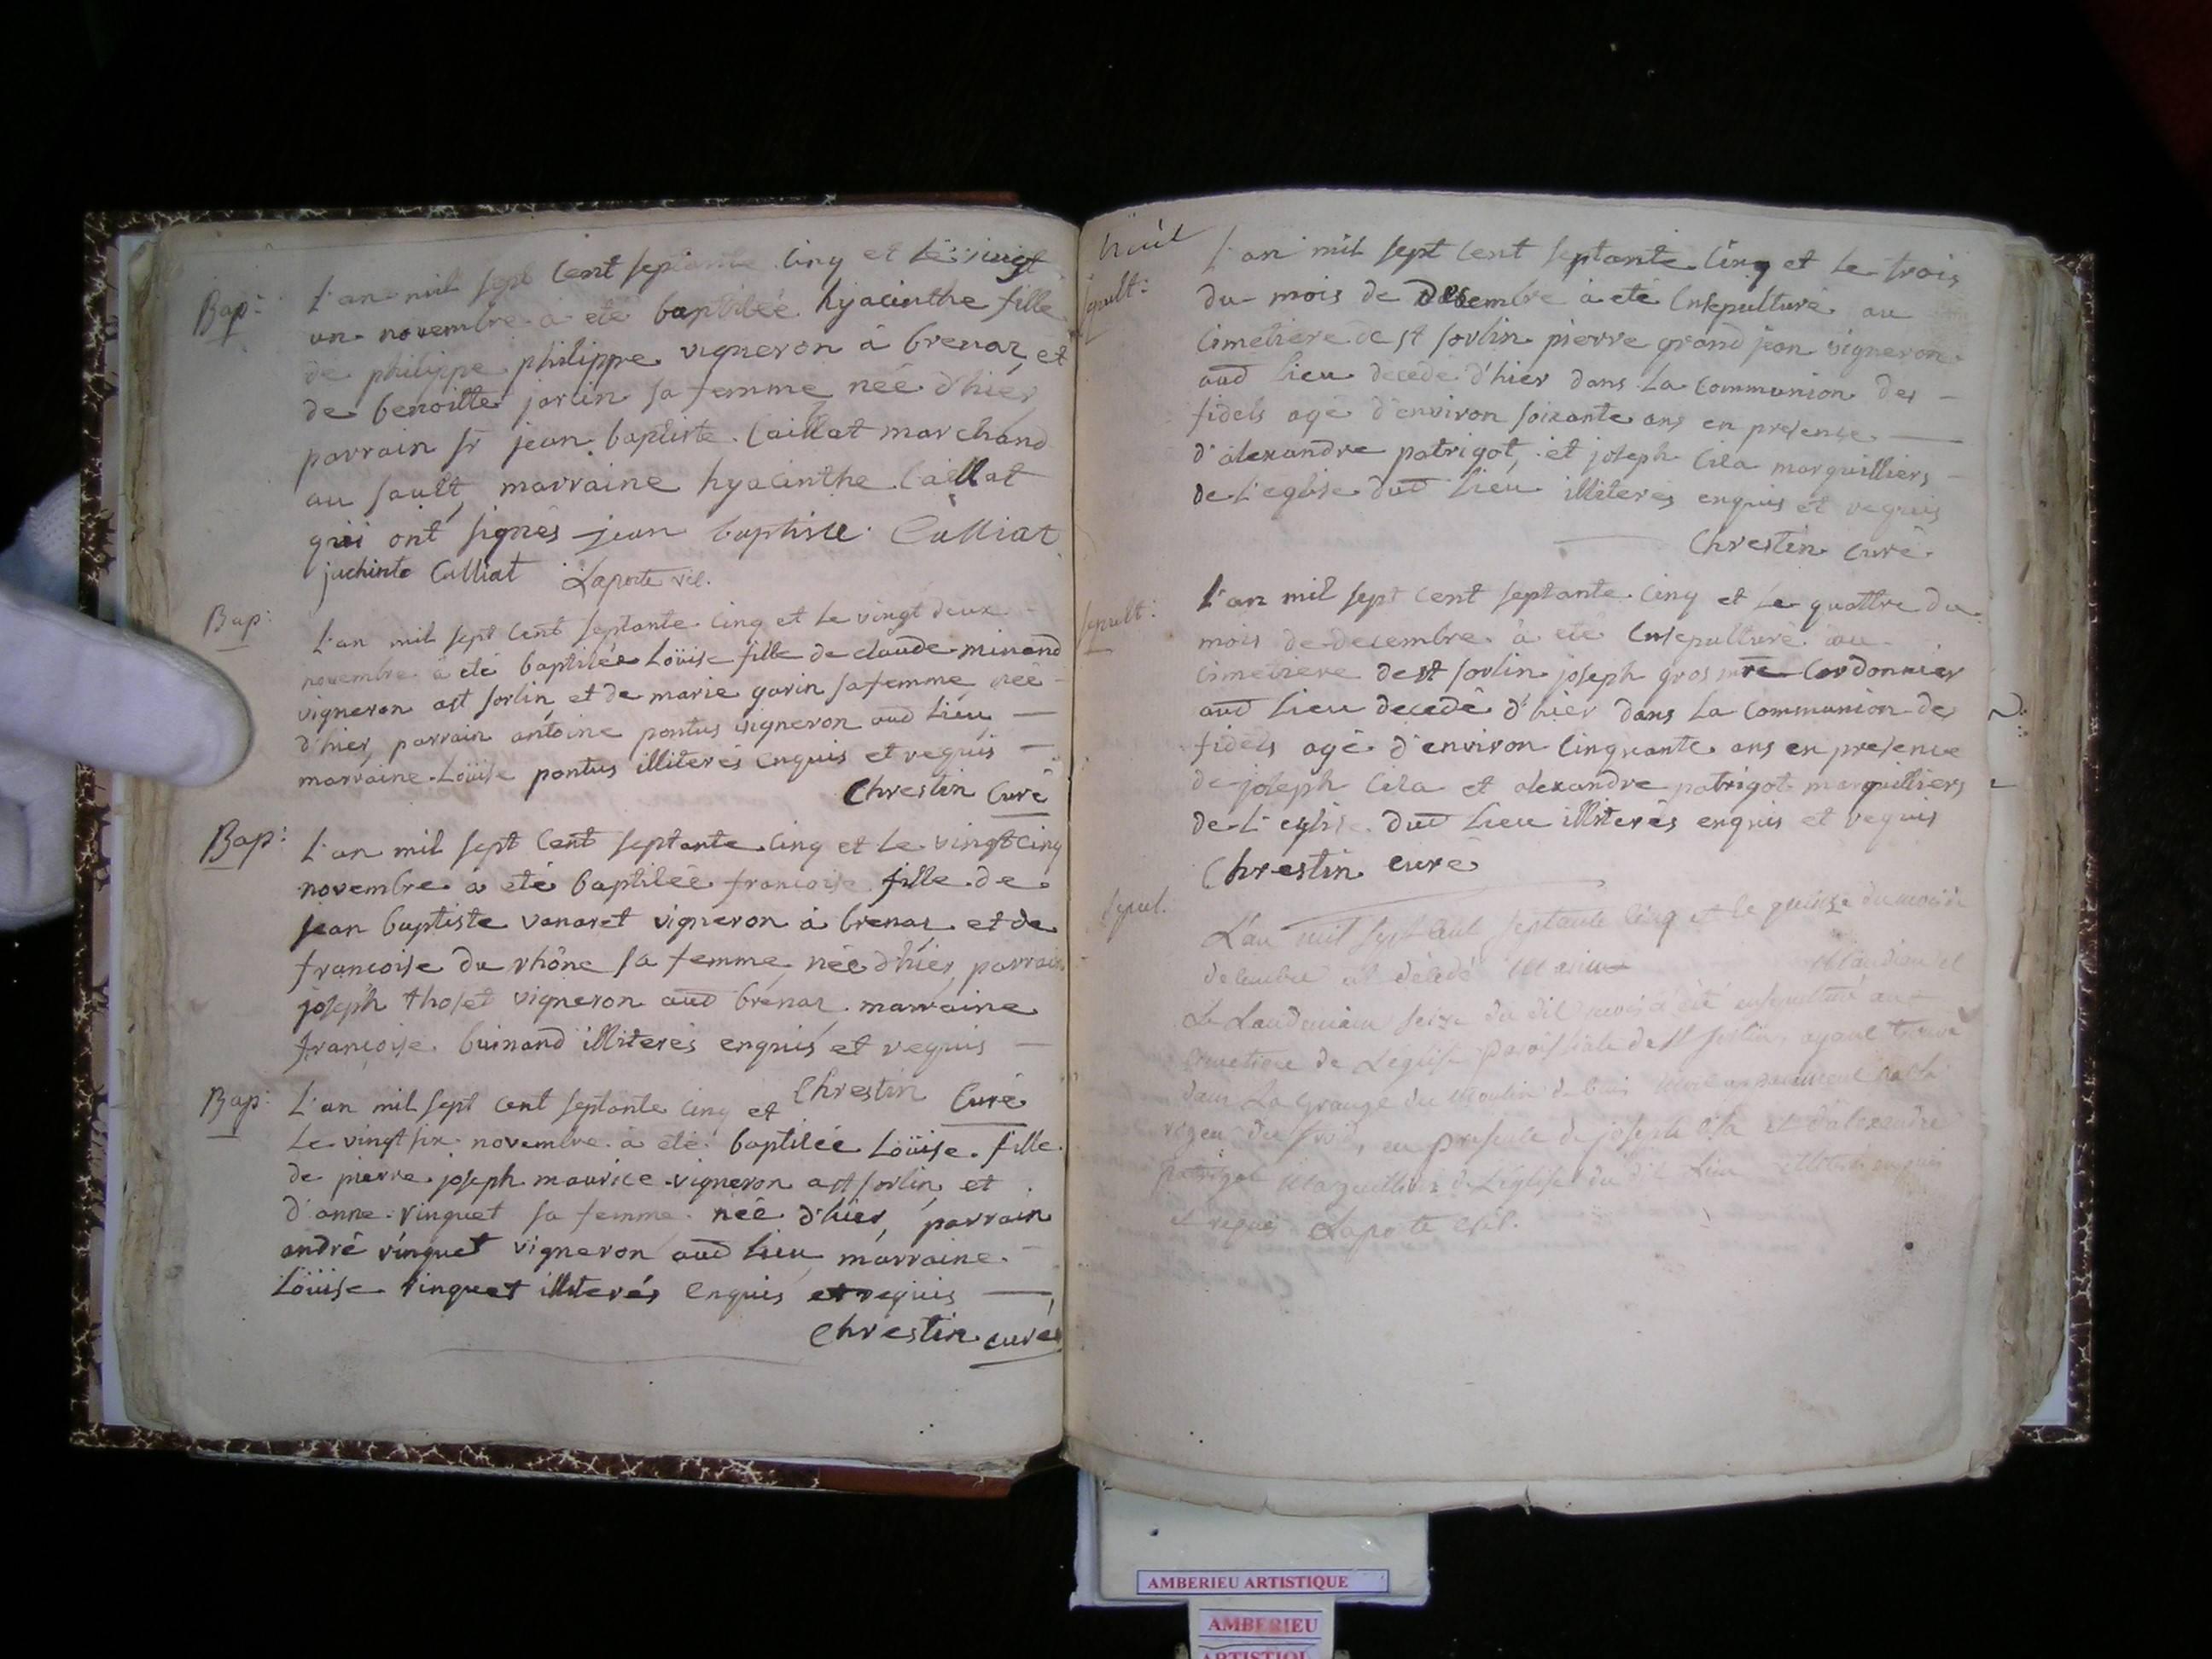 Bap:
L'an mil sept cent septante cinq et le vingt
un novembre a eté baptisée hyacinthe fille
de philippe philippe vigneron à brenaz, et
de benoitte jarlin sa femme née d'hier,
parrain sr jean baptiste Caillat marchand
au sault, marraine hyacinthe Caillat
qui ont signés jean baptiste Calliat
jachinte Calliat Laporte vic.
Bap:
L'an mil sept cent septante cinq et le vingt deux
novembre à eté baptisée Loüise fille de claude minand
vigneron a st sorlin, et de marie garin sa femme, née
d'hier, parrain antoine pontus vigneron aud lieu
marraine Loüise pontus illiterés enquis et requis
Chrestin Curé
Bap:
L'an mil sept cent septante cinq et le vingt cinq
novembre à eté baptisée francoise fille de
jean baptiste vanaret vigneron à brenaz, et de
francoise du rhône sa femme, née d'hier, parrain
joseph thoset vigneron aud brenaz marraine
françoise buinand illiterés enquis et requis
Chrestin Curé
Bap:
L'an mil sept cent septante cinq et
le vingt six novembre à eté baptisée Loüise fille
de pierre joseph maurice vigneron a st sorlin, et
d'anne vinquet sa femme née d'hier, parrain
andré vinquet vigneron aud lieu, marraine
Loüise vinquet illiterés enquis et requis
Chrestin curé
sepult:
L'an mil sept cent septante cinq et le trois
du mois de Decembre à eté ensepulturé au
cimetiere de st sorlin pierre grand jean vigneron
aud lieu decedé d'hier dans la communion des
fidels agé d'environ soixante ans en presence
d'alexandre patrigot, et joseph Cila marguilliers
de L'eglise dud lieu illiterés enquis et requis
Chrestin curé
sepult:
L'an mil sept cent septante cinq et le quattre du
mois de decembre à eté ensepulturé au
cimetiere de st sorlin joseph gros mre Cordonnier
aud lieu decedé d'hier dans la communion des
fidels agé d'environ cinquante ans en presence
de joseph Cila et alexandre patrigot marguilliers
de L'eglise dud lieu illiterés enquis et requis
Chrestin curé
sepul.
L'an mil sept cent septante cinq et le quinze du mois de
decembre est décédé
Le Landemain seize du dit mois à été ensepulturé au
cimetiere de L'eglise paroissiale de st sorlin, ayant trouvé
dans La grange du moulin de
du froid, en presence de joseph Cila et d'alexandre
patrigot Marguilliers de L'eglise du dit Lieu illiterés enquis
et requis Laporte vic.
AMBERIEU ARTISTIQUE
AMBERIEU
ARTISTIQUE